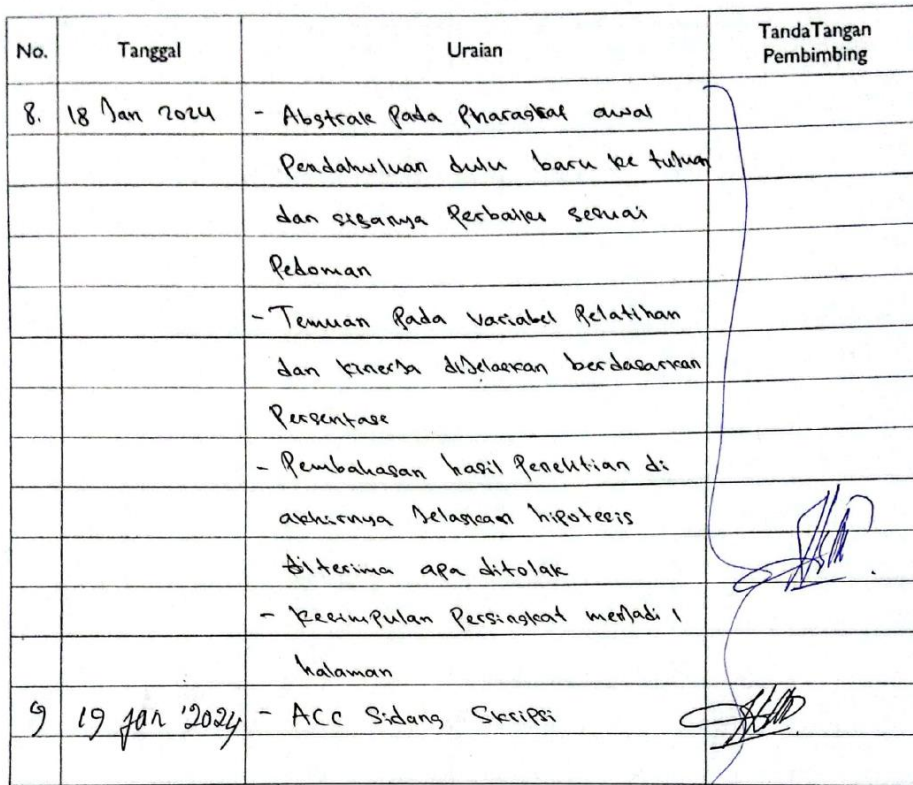 No. Tanggal Uraian TandaTangan
Pembimbing
8. 18 Jan 2024 - Abstrak Pada Pharagraf awal
Pendahuluan dulu baru ke tujuan
dan sisanya Perbaiki sesuai
Pedoman
- Temuan Pada Variabel Pelatihan
dan kinerja dijelaskan berdasarkan
Persentase
- Pembahasan hasil Penelitian di
akhirnya Jelaskan hipotesis
diterima apa ditolak
- Kesimpulan Persingkat menjadi 1
halaman
9 19 Jan '2024 - ACC Sidang Skripsi